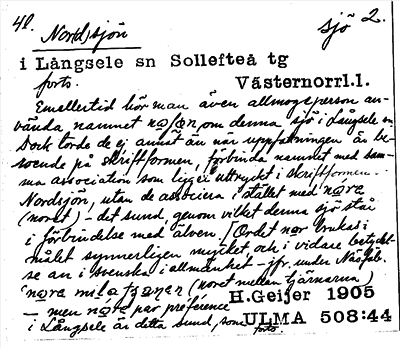 40. Nordsjön sjö 2.
i Långsele sn Sollefteå tg
forts. Västernorrl.l.
Emellertid hör man även allmogeperson an-
vända namnet om denna sjö i Långsele sn
Dock torde de ej annat än när uppfattningen är be-
roende på skriftformen, förbinda namnet med sam-
ma association som ligger uttryckt i skriftformen
Nordsjön, utan de associera i stället med
(noret) – det sund, genom vilket denna sjö står
i förbindelse med älven. (Ordet nor brukas i
målet synnerligen mycket och i vidare betydel-
se än i svenska i allmänhet – jfr. under
(noret mellan tjärnarna)
– men par préférence H.Geijer 1905
i Långsele är detta sund, som forts. ULMA 508:44